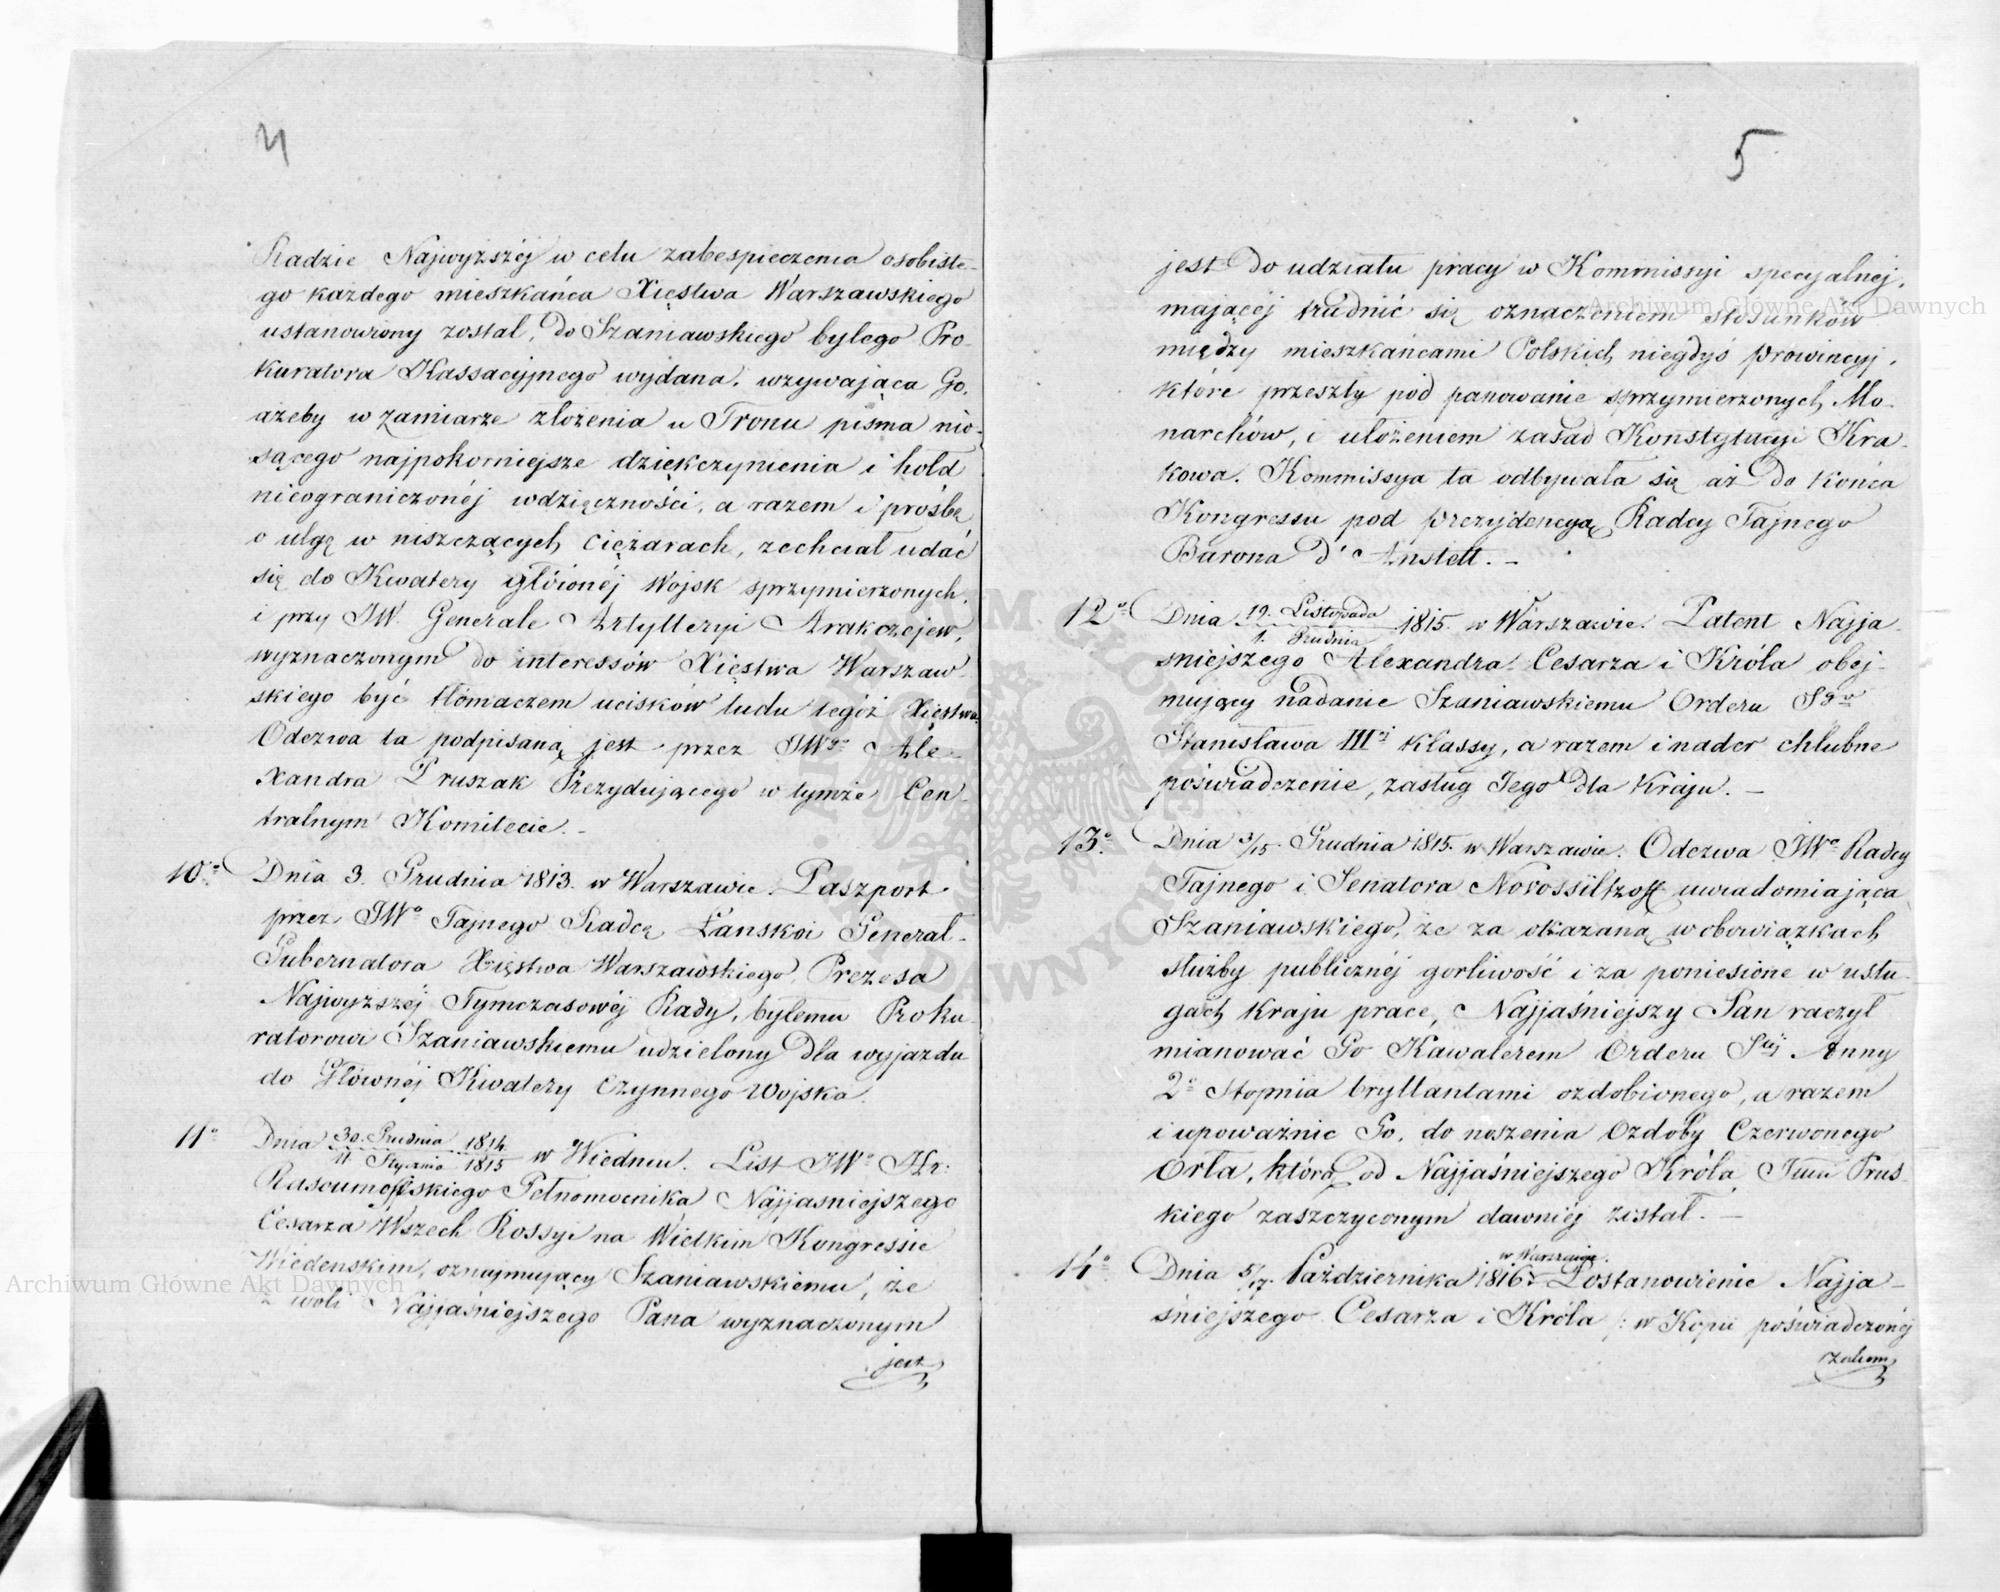 4
Radzie Najwyższéj w celu zabespieczenia osobiste-
go każdego mieszkańca Xięstwa Warszawskiego
ustanowiony został, do Szaniawskiego byłego Pro-
kuratora Kassacyjnego wydana, wzywająca Go,
ażeby w zamiarze złożenia u Tronu pisma nio-
sącego najpokorniejsze dziękczynienia i hołd
nieograniczonéj wdzięczności, a razem i prośbę
o ulgę w niszczących ciężarach, zechciał udać
się do Kwatery głównéj Wojsk sprzymierzonych,
i przy JW. Generale Artylleryi Arakczejew,
wyznaczonym do interessów Xięstwa Warszaw-
skiego być tłómaczem ucisków ludu tegóż Xięstwa.
Odezwa ta podpisaną jest przez JWgo Ale-
xandra Pruszak Prezydującego w tymże Cen-
tralnym Komitecie. -
10o Dnia 3. Grudnia 1813. w Warszawie. Paszport
przez JWo Tajnego Radcę Łanskoi General-
Gubernatora Xięstwa Warszawskiego, Prezesa
Najwyższéj Tymczasowéj Rady, byłemu Proku-
ratorowi Szaniawskiemu udzielony dla wyjazdu
do Głównéj Kwatery Czynnego Wojska.
11o Dnia 30. Grudnia 1814 / 11 Stycznia 1815 w Wiedniu. List JWo Hr:
Rasoumoffskiego Pełnomocnika Najjaśniejszego
Cesarza Wszech Rossyi na Wielkim Kongressie
Wiedenskim, oznajmujący Szaniawskiemu, że
z woli Najjaśniejszego Pana wyznaczonym
jest
5
jest do udziału pracy w Kommissyi specyalnej,
mającéj trudnić się oznaczeniem stosunków
między mieszkańcami Polskich niegdyś prowincyj,
które przeszły pod panowanie sprzymierzonych Mo-
narchów, i ułożeniem zasad Konstytucyi Kra-
kowa. Kommissya ta odbywała się aż do końca
Kongressu pod prezydencyą Radcy Tajnego
Barona d'Anstett. -
12o Dnia 19. Listopada / 1. Grudnia 1815. w Warszawie. Patent Najja-
śniejszego Alexandra Cesarza i Króla obej-
mujący nadanie Szaniawskiemu Orderu Sgo
Stanisława IIIéj klassy, a razem i nader chlubne
poświadczenie, zasług Jego dla Kraju. -
13o Dnia 3/15. Grudnia 1815. w Warszawie. Odezwa JWo Radcy
Tajnego i Senatora Novossiltzoff uwiadomiająca
Szaniawskiego, że za okazaną w obowiązkach
służby publicznéj gorliwość i za poniesione w usłu-
gach kraju prace, Najjaśniejszy Pan raczył
mianować Go Kawalerem Orderu Stéj Anny
2o Stopnia bryllantami ozdobionego, a razem
i upoważnić Go, do noszenia Ozdoby Czerwonego
Orła, którą od Najjaśniejszego Króla Prus-
kiego zaszczyconym dawniéj został. -
14o Dnia 5/17. Października 1816 r. w Warszawie. Postanowienie Najja-
śniejszego Cesarza i Króla /: w Kopii poświadczonéj
Archiwum Główne Akt Dawnych
Archiwum Główne Akt Dawnych